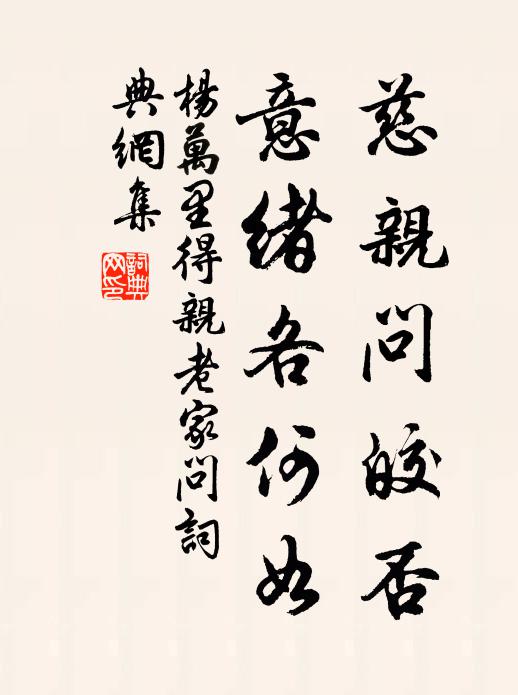 慈親問皎否
意緒各何如
楊萬里得親老家問詞
典網集
詞典
网印